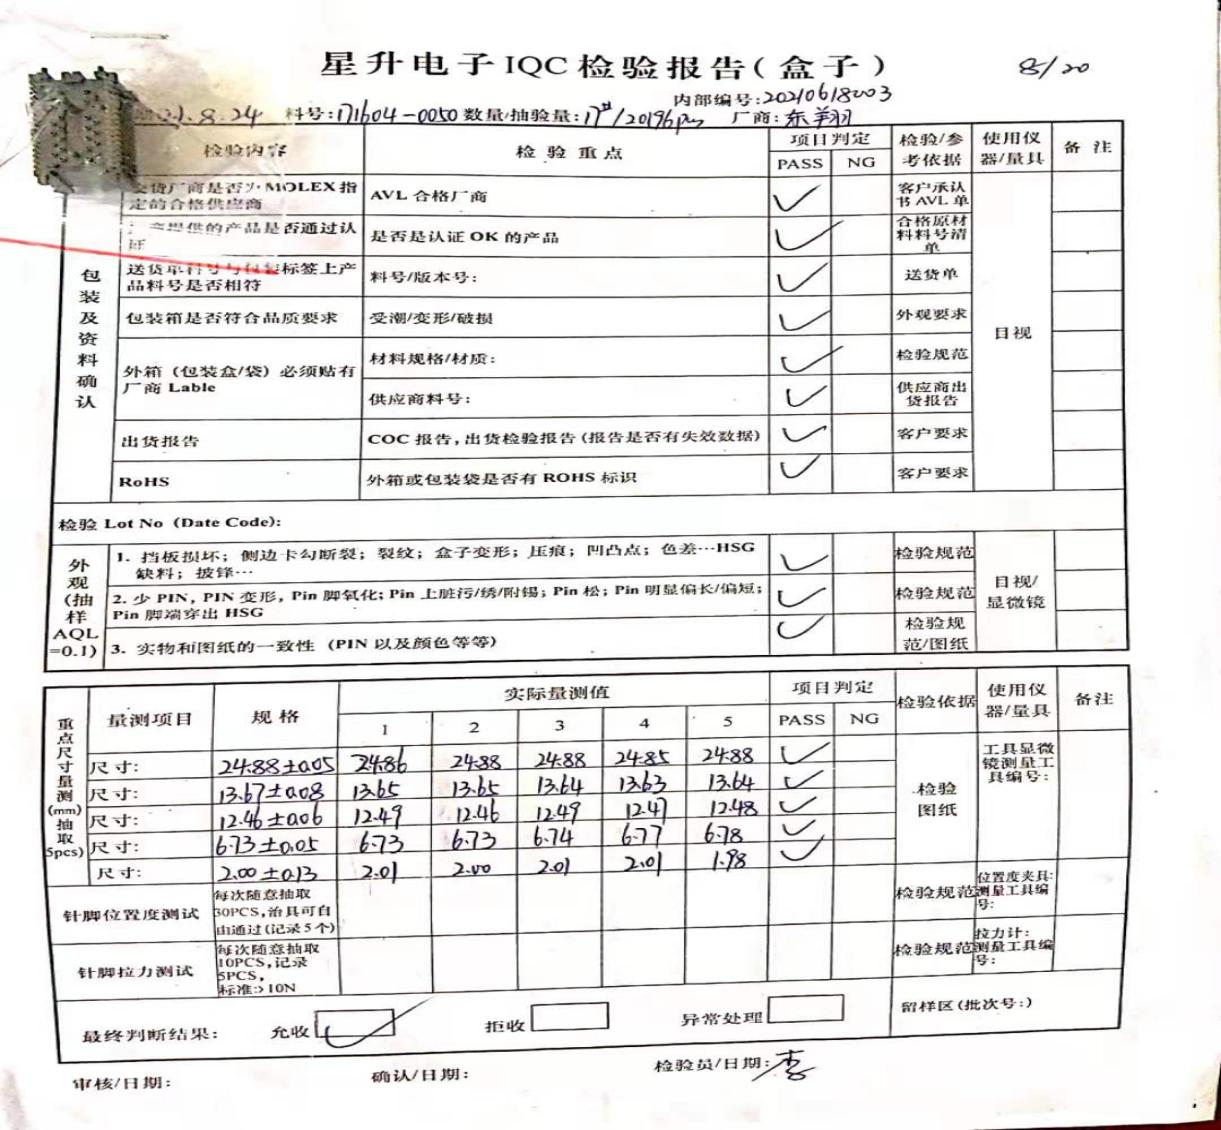 星升电子IQC检验报告(盒子)
8/20
内部编号:20210618003
21.8.24 料号:171604-0050 数量/抽验量: 厂商:东翔
检验内容 检验重点 项目判定 检验/参考依据 使用仪器/量具 备注
PASS NG
包装及资料确认
交货厂商是否为MOLEX指定的合格供应商 AVL合格厂商 客户承认书AVL单
商提供的产品是否通过认证 是否是认证OK的产品 合格原材料料号清单
送货单料号与包装标签上产品料号是否相符 料号/版本号: 送货单
包装箱是否符合品质要求 受潮/变形/破损 外观要求 目视
外箱(包装盒/袋)必须贴有厂商Lable 材料规格/材质: 检验规范
供应商料号: 供应商出货报告
出货报告 COC报告,出货检验报告(报告是否有失效数据) 客户要求
RoHS 外箱或包装袋是否有ROHS标识 客户要求
检验Lot No (Date Code):
外观(抽样AQL=0.1)
1. 挡板损坏;侧边卡勾断裂;裂纹;盒子变形;压痕;凹凸点;色差…HSG 检验规范
缺料;披锋…
2. 少PIN, PIN变形, Pin脚氧化; Pin上脏污/绣/附锡; Pin松; Pin明显偏长/偏短; 检验规范 目视/显微镜
Pin脚端穿出HSG
3. 实物和图纸的一致性 (PIN以及颜色等等) 检验规范/图纸
重点尺寸量测(mm)抽取5pcs)
量测项目 规格 实际量测值 项目判定 检验依据 使用仪器/量具 备注
1 2 3 4 5 PASS NG
尺寸: 24.88±0.05 24.86 24.88 24.88 24.85 24.88 工具显微镜测量工具编号:
尺寸: 13.67±0.08 13.65 13.65 13.64 13.63 13.64 检验图纸
尺寸: 12.46±0.06 12.49 12.46 12.49 12.47 12.48
尺寸: 6.73±0.05 6.73 6.73 6.74 6.77 6.78
尺寸: 2.00±0.13 2.01 2.00 2.01 2.01 1.98
针脚位置度测试 每次随意抽取30PCS,治具可自由通过(记录5个) 检验规范 位置度夹具:测量工具编号:
针脚拉力测试 每次随意抽取10PCS,记录5PCS,标准:>10N 检验规范 拉力计:测量工具编号:
最终判断结果: 允收 拒收 异常处理 留样区(批次号:)
审核/日期: 确认/日期: 检验员/日期:李